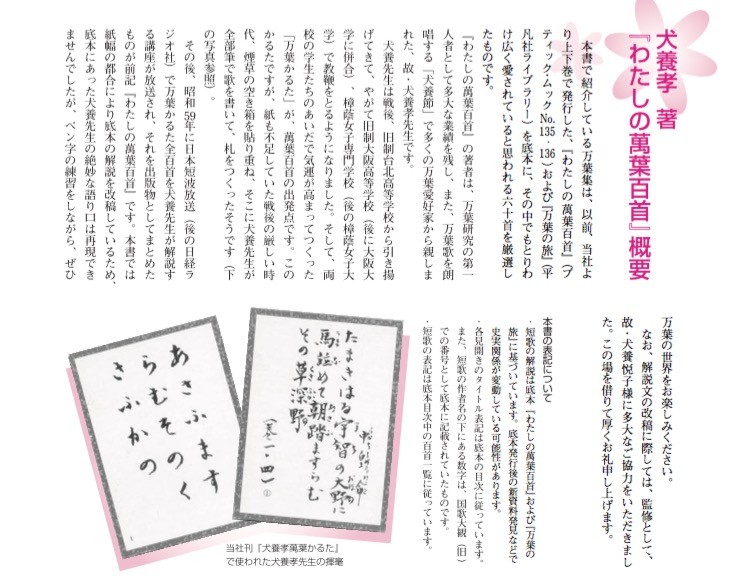 犬養孝 著
『わたしの萬葉百首』概要
本書で紹介している万葉集は、以前、当社よ
り上下巻で発行した、『わたしの萬葉百首』（ブ
ティックムックNo.135・136）および『万葉の旅』（平
凡社ライブラリー）を底本に、その中でもとりわ
け広く愛されていると思われる六十首を厳選し
たものです。
『わたしの萬葉百首』の著者は、万葉研究の第一
人者として多大な業績を残し、また、万葉歌を朗
唱する「犬養節」で多くの万葉愛好家から親しま
れた、故・犬養孝先生です。
犬養先生は戦後、旧制台北高等学校から引き揚
げてきて、やがて旧制大阪高等学校（後に大阪大
学に併合）、樟蔭女子専門学校（後の樟蔭女子大
学）で教鞭をとるようになりました。そして、両
校の学生たちのあいだで気運が高まってつくった
「万葉かるた」が、萬葉百首の出発点です。この
かるたですが、紙も不足していた戦後の厳しい時
代、煙草の空き箱を貼り重ね、そこに犬養先生が
全部筆で歌を書いて、札をつくったそうです（下
の写真参照）。
その後、昭和59年に日本短波放送（後の日経ラ
ジオ社）で万葉かるた全百首を犬養先生が解説す
る講座が放送され、それを出版物としてまとめた
ものが前記『わたしの萬葉百首』です。本書では
紙幅の都合により底本の解説を改稿しているため、
底本にあった犬養先生の絶妙な語り口は再現でき
ませんでしたが、ペン字の練習をしながら、ぜひ
万葉の世界をお楽しみください。
なお、解説文の改稿に際しては、監修として、
故・犬養悦子様に多大なご協力をいただきまし
た。この場を借りて厚くお礼申し上げます。
本書の表記について
・短歌の解説は底本『わたしの萬葉百首』および『万葉の
旅』に基づいています。底本発行後の新資料発見などで
史実関係が変動している可能性があります。
・各見開きのタイトル表記は底本の目次に従っています。
また、短歌の作者名の下にある数字は、国歌大観（旧）
での番号として底本に記載されていたものです。
・短歌の表記は底本目次中の百首一覧に従っています。
たまきはる宇智の大野に
馬並めて朝踏ますらむ
その草深野
（巻一・四）①
あさふます
らむそのく
さふかの
1
当社刊『犬養孝萬葉かるた』
で使われた犬養孝先生の揮毫